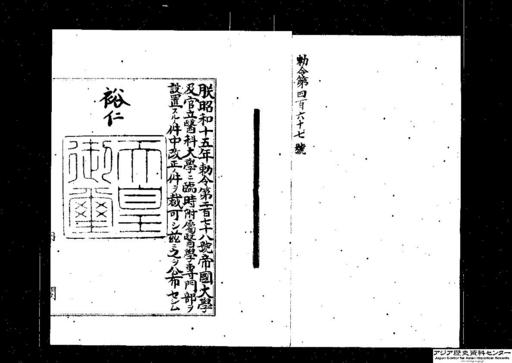 勅令第四百六十七號
朕昭和十五年勅令第二百七十八號帝國大學
及官立醫科大學ニ臨時附屬醫學專門部ヲ
設置スルノ件中改正ノ件ヲ裁可シ茲ニ之ヲ公布セシム
裕仁
天皇
御璽
アジア歴史資料センター
Japan Center for Asian Historical Records